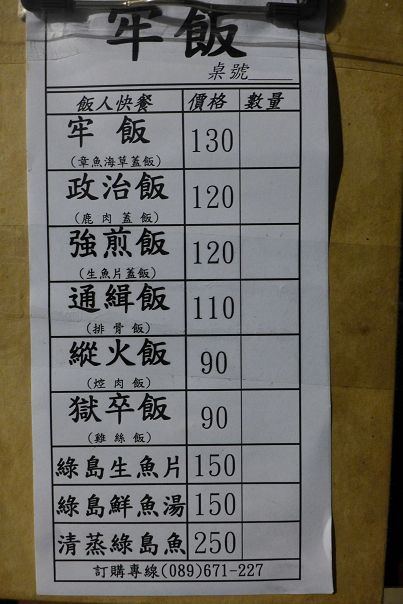 牢飯
桌號
飯人快餐 價格 數量
牢飯 130
(章魚海草蓋飯)
政治飯 120
(鹿肉蓋飯)
強煎飯 120
(生魚片蓋飯)
通緝飯 110
(排骨飯)
縱火飯 90
(焢肉飯)
獄卒飯 90
(雞絲飯)
綠島生魚片 150
綠島鮮魚湯 150
清蒸綠島魚 250
訂購專線(089)671-227